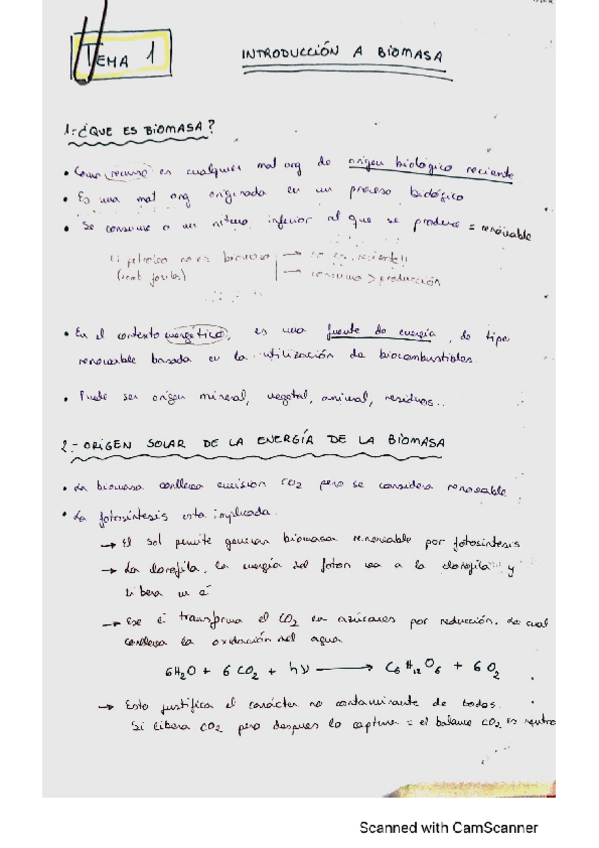 TEMA 1
INTRODUCCIÓN A BIOMASA
1.- ¿QUE ES BIOMASA?
• Como recurso es cualquier mat org de origen biológico reciente
• Es una mat org originada en un proceso biológico
• Se consume a un ritmo inferior al que se produce = renovable
petróleo no es biomasa → no es reciente!!
(comb fosiles) → consumo > producción
• En el contexto energético, es una fuente de energía, de tipo
renovable basada en la utilización de biocombustibles.
• Puede ser origen mineral, vegetal, animal, residuos...
2.- ORIGEN SOLAR DE LA ENERGÍA DE LA BIOMASA
• La biomasa conlleva emisión CO2 pero se considera renovable.
• La fotosíntesis esta implicada.
→ El sol permite generar biomasa renovable por fotosíntesis
→ La clorofila, la energía del foton va a la clorofila y
libera un é
→ Ese é transforma el CO2 en azúcares por reducción. Lo cual
conlleva la oxidación del agua
6H2O + 6CO2 + hν → C6H12O6 + 6O2
→ Esto justifica el carácter no contaminante de todos.
Si libera CO2 pero despues lo captura = el balance CO2 es neutro
Scanned with CamScanner